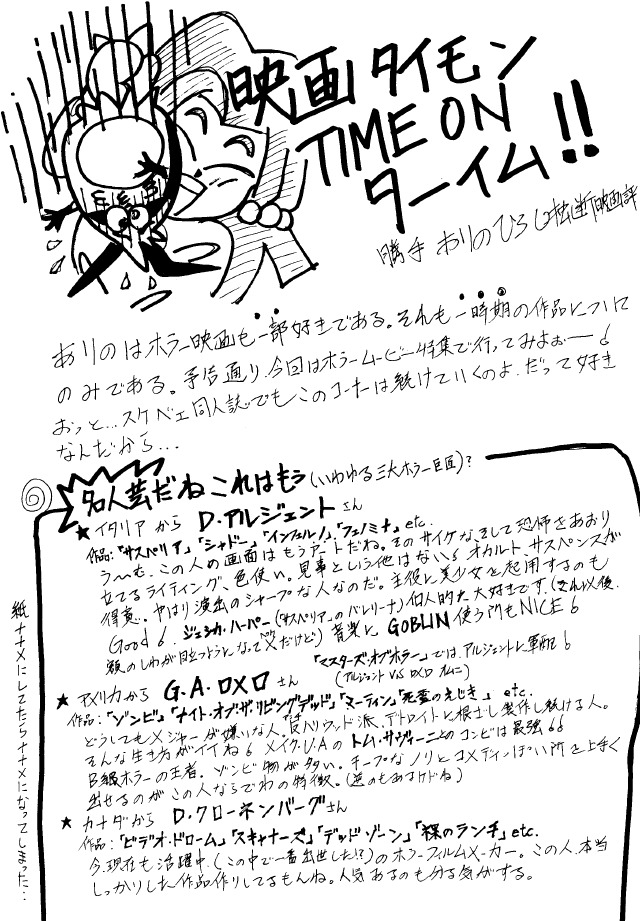 映画タイモン
TIME ON
ターイム!!
勝手 ありのひろし独断映画評
ありのはホラー映画も一部好きである。それも一時期の作品について
のみである。予告通り、今回はホラームービー特集で行ってみよぉーー!
おっと…スケベェ同人誌でもこのコーナーは続けていくのよ。だって好き
なんだから…
名人芸だねこれはもう(いわゆる三大ホラー巨匠)?
★イタリアから D・アルジェントさん
作品:「サスペリア」「シャドー」「インフェルノ」「フェノミナ」etc.
う〜む、この人の画面はもうアートだね。そのサイケな、そして恐怖をあおり
立てるライティング、色使い。見事という他はない!オカルト、サスペンスが
得意。やはり演出のシャープな人なのだ。主役に美少女を起用するのも
Good! ジェシカ・ハーパー(「サスペリア」のバレリーナ)個人的に大好きです。(それ以後
額のしわが目立つようになってダメだけど)音楽に GOBLIN 使う所もNICE!
「マスターズ・オブ・ホラー」では、アルジェントに軍配!
(アルジェント VS ロメロ オムニ)
★アメリカから G.A.ロメロさん
作品:「ゾンビ」「ナイト・オブ・ザ・リビングデッド」「マーティン」「死霊のえじき」etc.
どうしてもメジャーが嫌いな人。反ハリウッド派、デトロイトに根ざし製作し続ける人。
そんな生き方がイイね! メイク・U.Aのトム・サヴィーニとのコンビは最強!!
B級ホラーの王者。ゾンビ物が多い。チープなノリとコメディっぽい所を上手く
出せるのがこの人ならでわの特徴。(逆のもあるけどね)
★カナダから D.クローネンバーグさん
作品:「ビデオ・ドローム」「スキャナーズ」「デッドゾーン」「裸のランチ」etc.
今現在も活躍中。(この中で一番出世した!?)のホラーフィルムメーカー。この人、本当
しっかりした作品作りしてるもんね。人気あるのも分る気がする。
紙ナナメにしてたらナナメになってしまった…